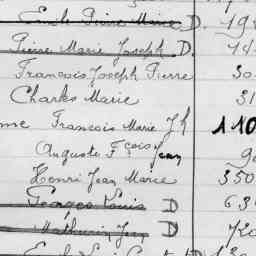 Emile Pierre Marie D. 194
Pierre Marie Joseph D. 14
Francois Joseph Pierre 30
Charles Marie 31
me Francois Marie Jh 110
Auguste Fçois Jean 90
Henri Jean Marie 350
Georges Louis D 639
Mathurin Jean D 720